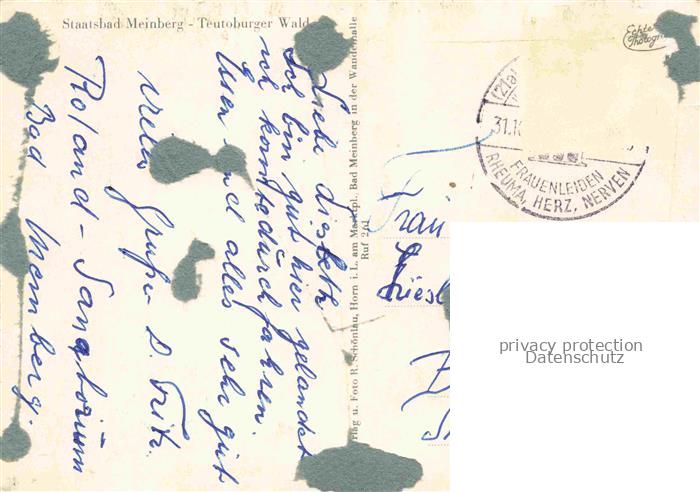 Staatsbad Meinberg - Teutoburger Wald
Liebe Lisbeth
Ich bin gut hier gelandet
ich konnte durchfahren.
Essen und alles sehr gut
viele Grüße D. Fritz.
Roland-Sanatorium
Bad Meinberg.
rlag u. Foto R. Schönlau, Horn i. L. am Marktpl., Bad Meinberg in der Wandelhalle
Ruf 261
Echte
Photogr
(21a
31.10
FRAUENLEIDEN
RHEUMA, HERZ, NERVEN
Fräu
Liesb
privacy protection
Datenschutz